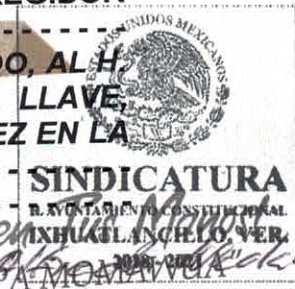 REGIDOR
DO, AL H.
LLAVE,
EZ EN LA
ESTADOS UNIDOS MEXICANOS
SINDICATURA
H. AYUNTAMIENTO CONSTITUCIONAL
IXHUATLANCILLO, VER.
2018-2021